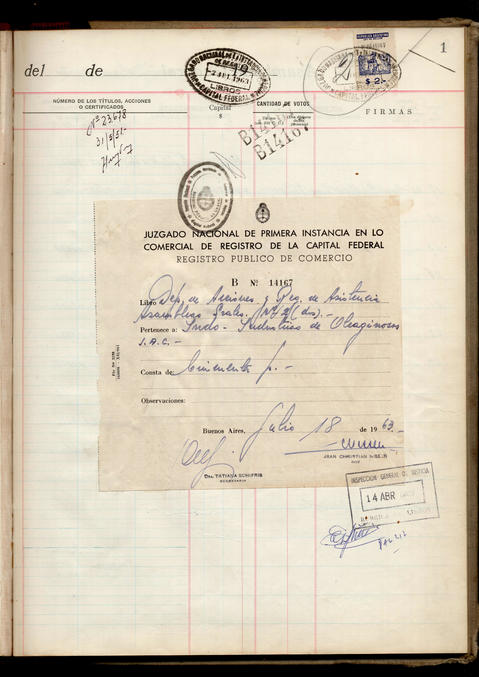 1
del de
NÚMERO DE LOS TÍTULOS, ACCIONES
O CERTIFICADOS
Capital
$
CANTIDAD DE VOTOS
FIRMAS
CAPITAL FEDERAL
LIBROS
$ 2.-
Nº 23678
B14167
B14167
JUZGADO NACIONAL DE PRIMERA INSTANCIA EN LO
COMERCIAL DE REGISTRO DE LA CAPITAL FEDERAL
REGISTRO PUBLICO DE COMERCIO
B Nº 14167
Libro Dep. de Acciones y Reg. de Asistencia
Asambleas Grales. Nº 2 (dos).-
Pertenece a: Indo-Industrias de Oleaginosos
S.A.C.-
Consta de: Cincuenta f.-
Observaciones:
Buenos Aires, Julio 18 de 1963.-
JUEZ
Dra. TATIANA SCHIFRIS
SECRETARIA
INSPECCION GENERAL DE JUSTICIA
14 ABR